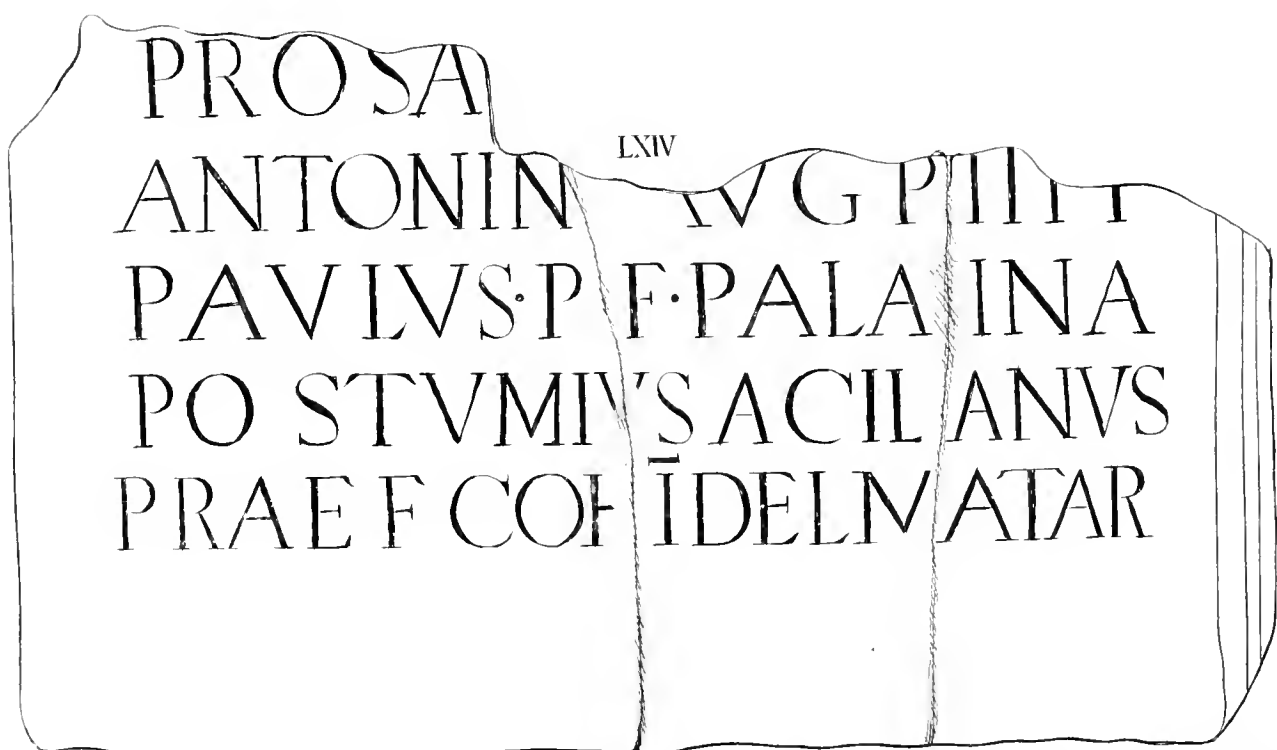 PROSA
LXIV
ANTONIN AVG PII
PAVLVS·P F·PALA INA
PO STVMIVS ACILANVS
PRAE F COH I DELMATAR